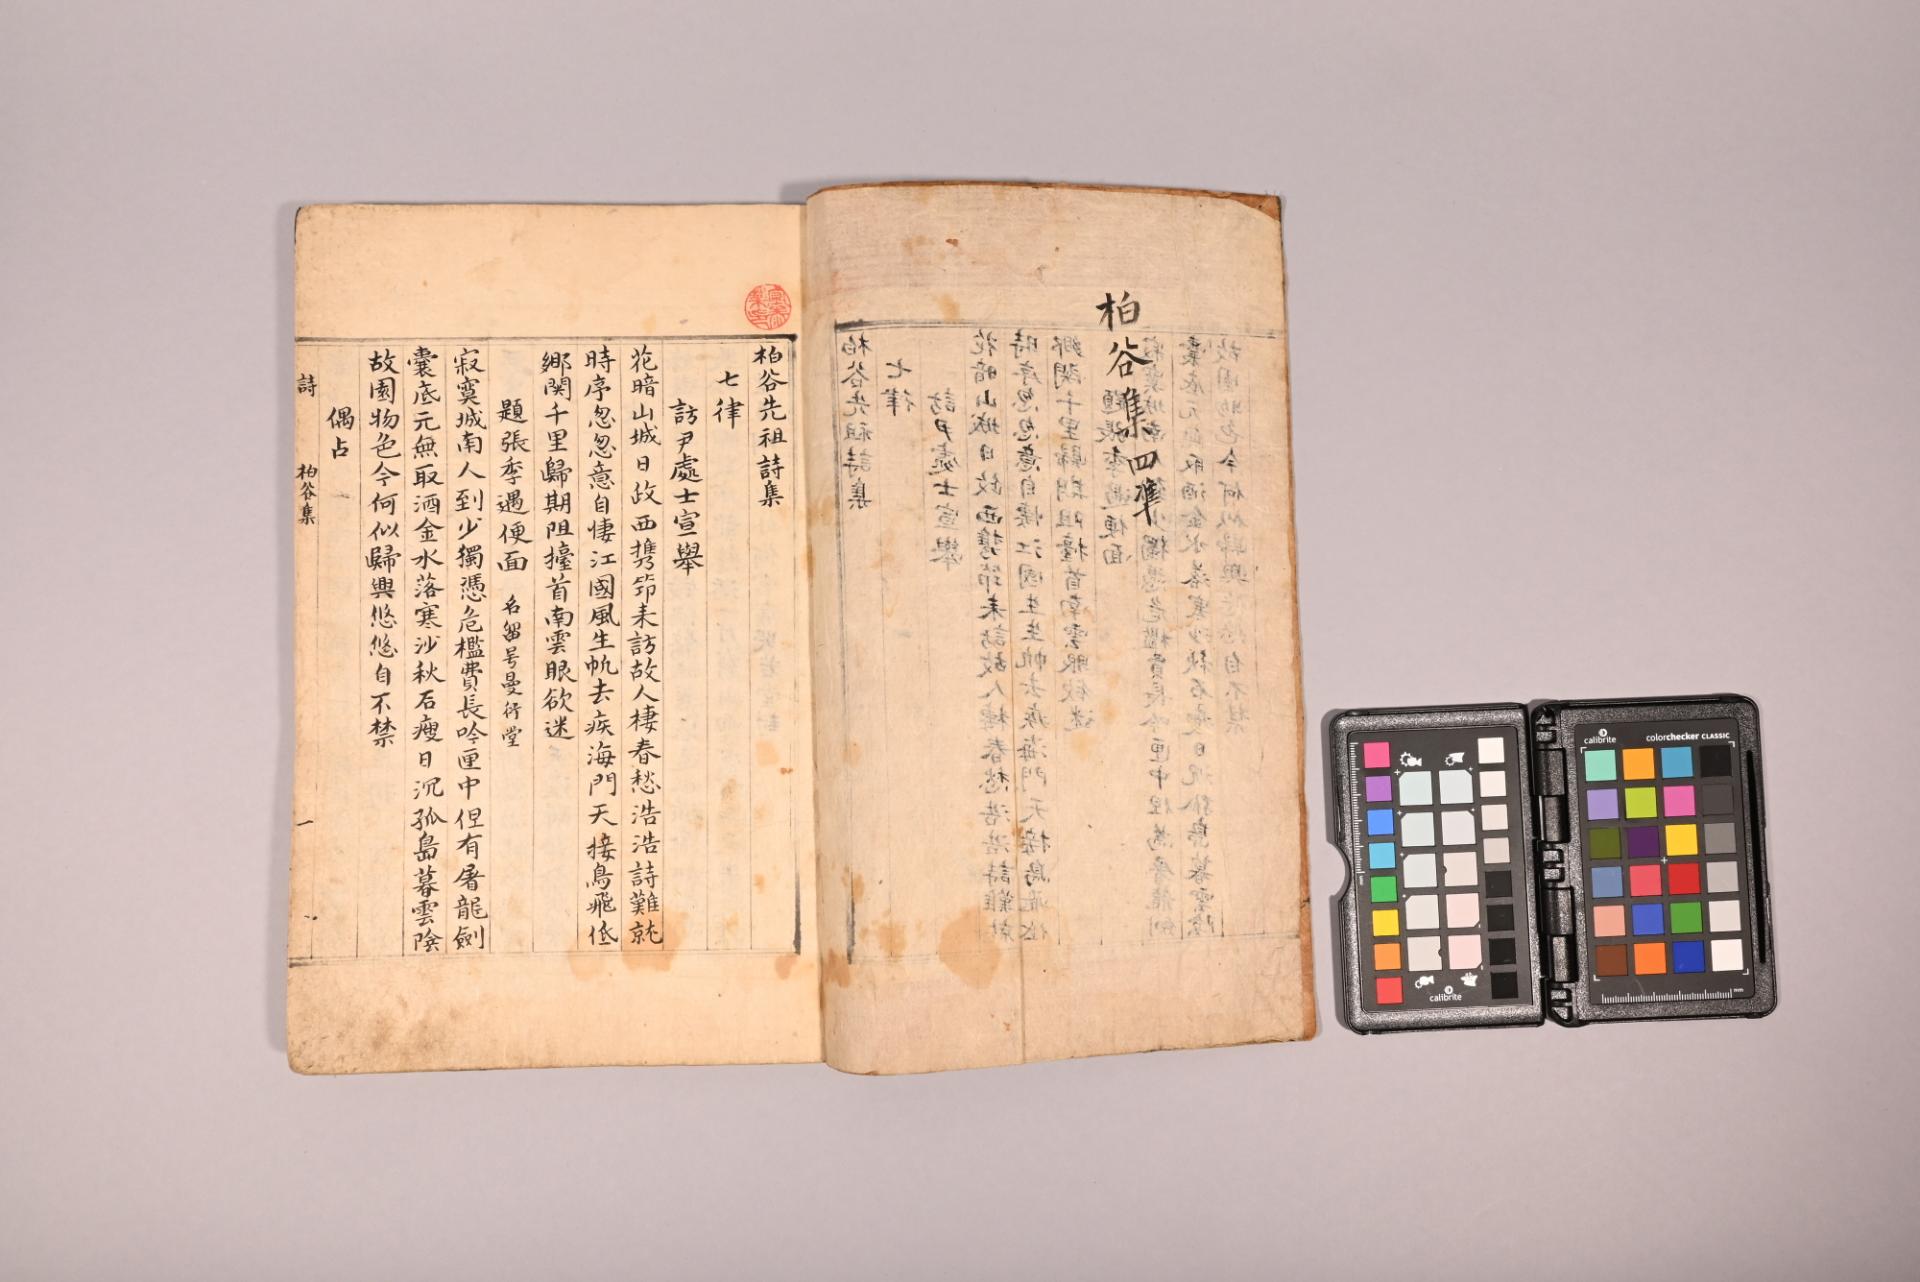 柏谷集四準
柏谷先祖詩集
七律
訪尹處士宣舉
花暗山城日政西携笻来訪故人棲春愁浩浩詩難就
時序忽忽意自悽江國風生帆去疾海門天接鳥飛低
鄉関千里歸期阻擡首南雲眼欲迷
題張季遇便面 名留号曼衍堂
寂寞城南人到少獨憑危檻費長吟匣中但有屠龍劍
囊底元無取酒金水落寒沙秋石瘦日沉孤島暮雲陰
故園物色今何似歸興悠悠自不禁
偶占
詩 柏谷集 一
calibrite
calibrite
colorchecker CLASSIC
mm